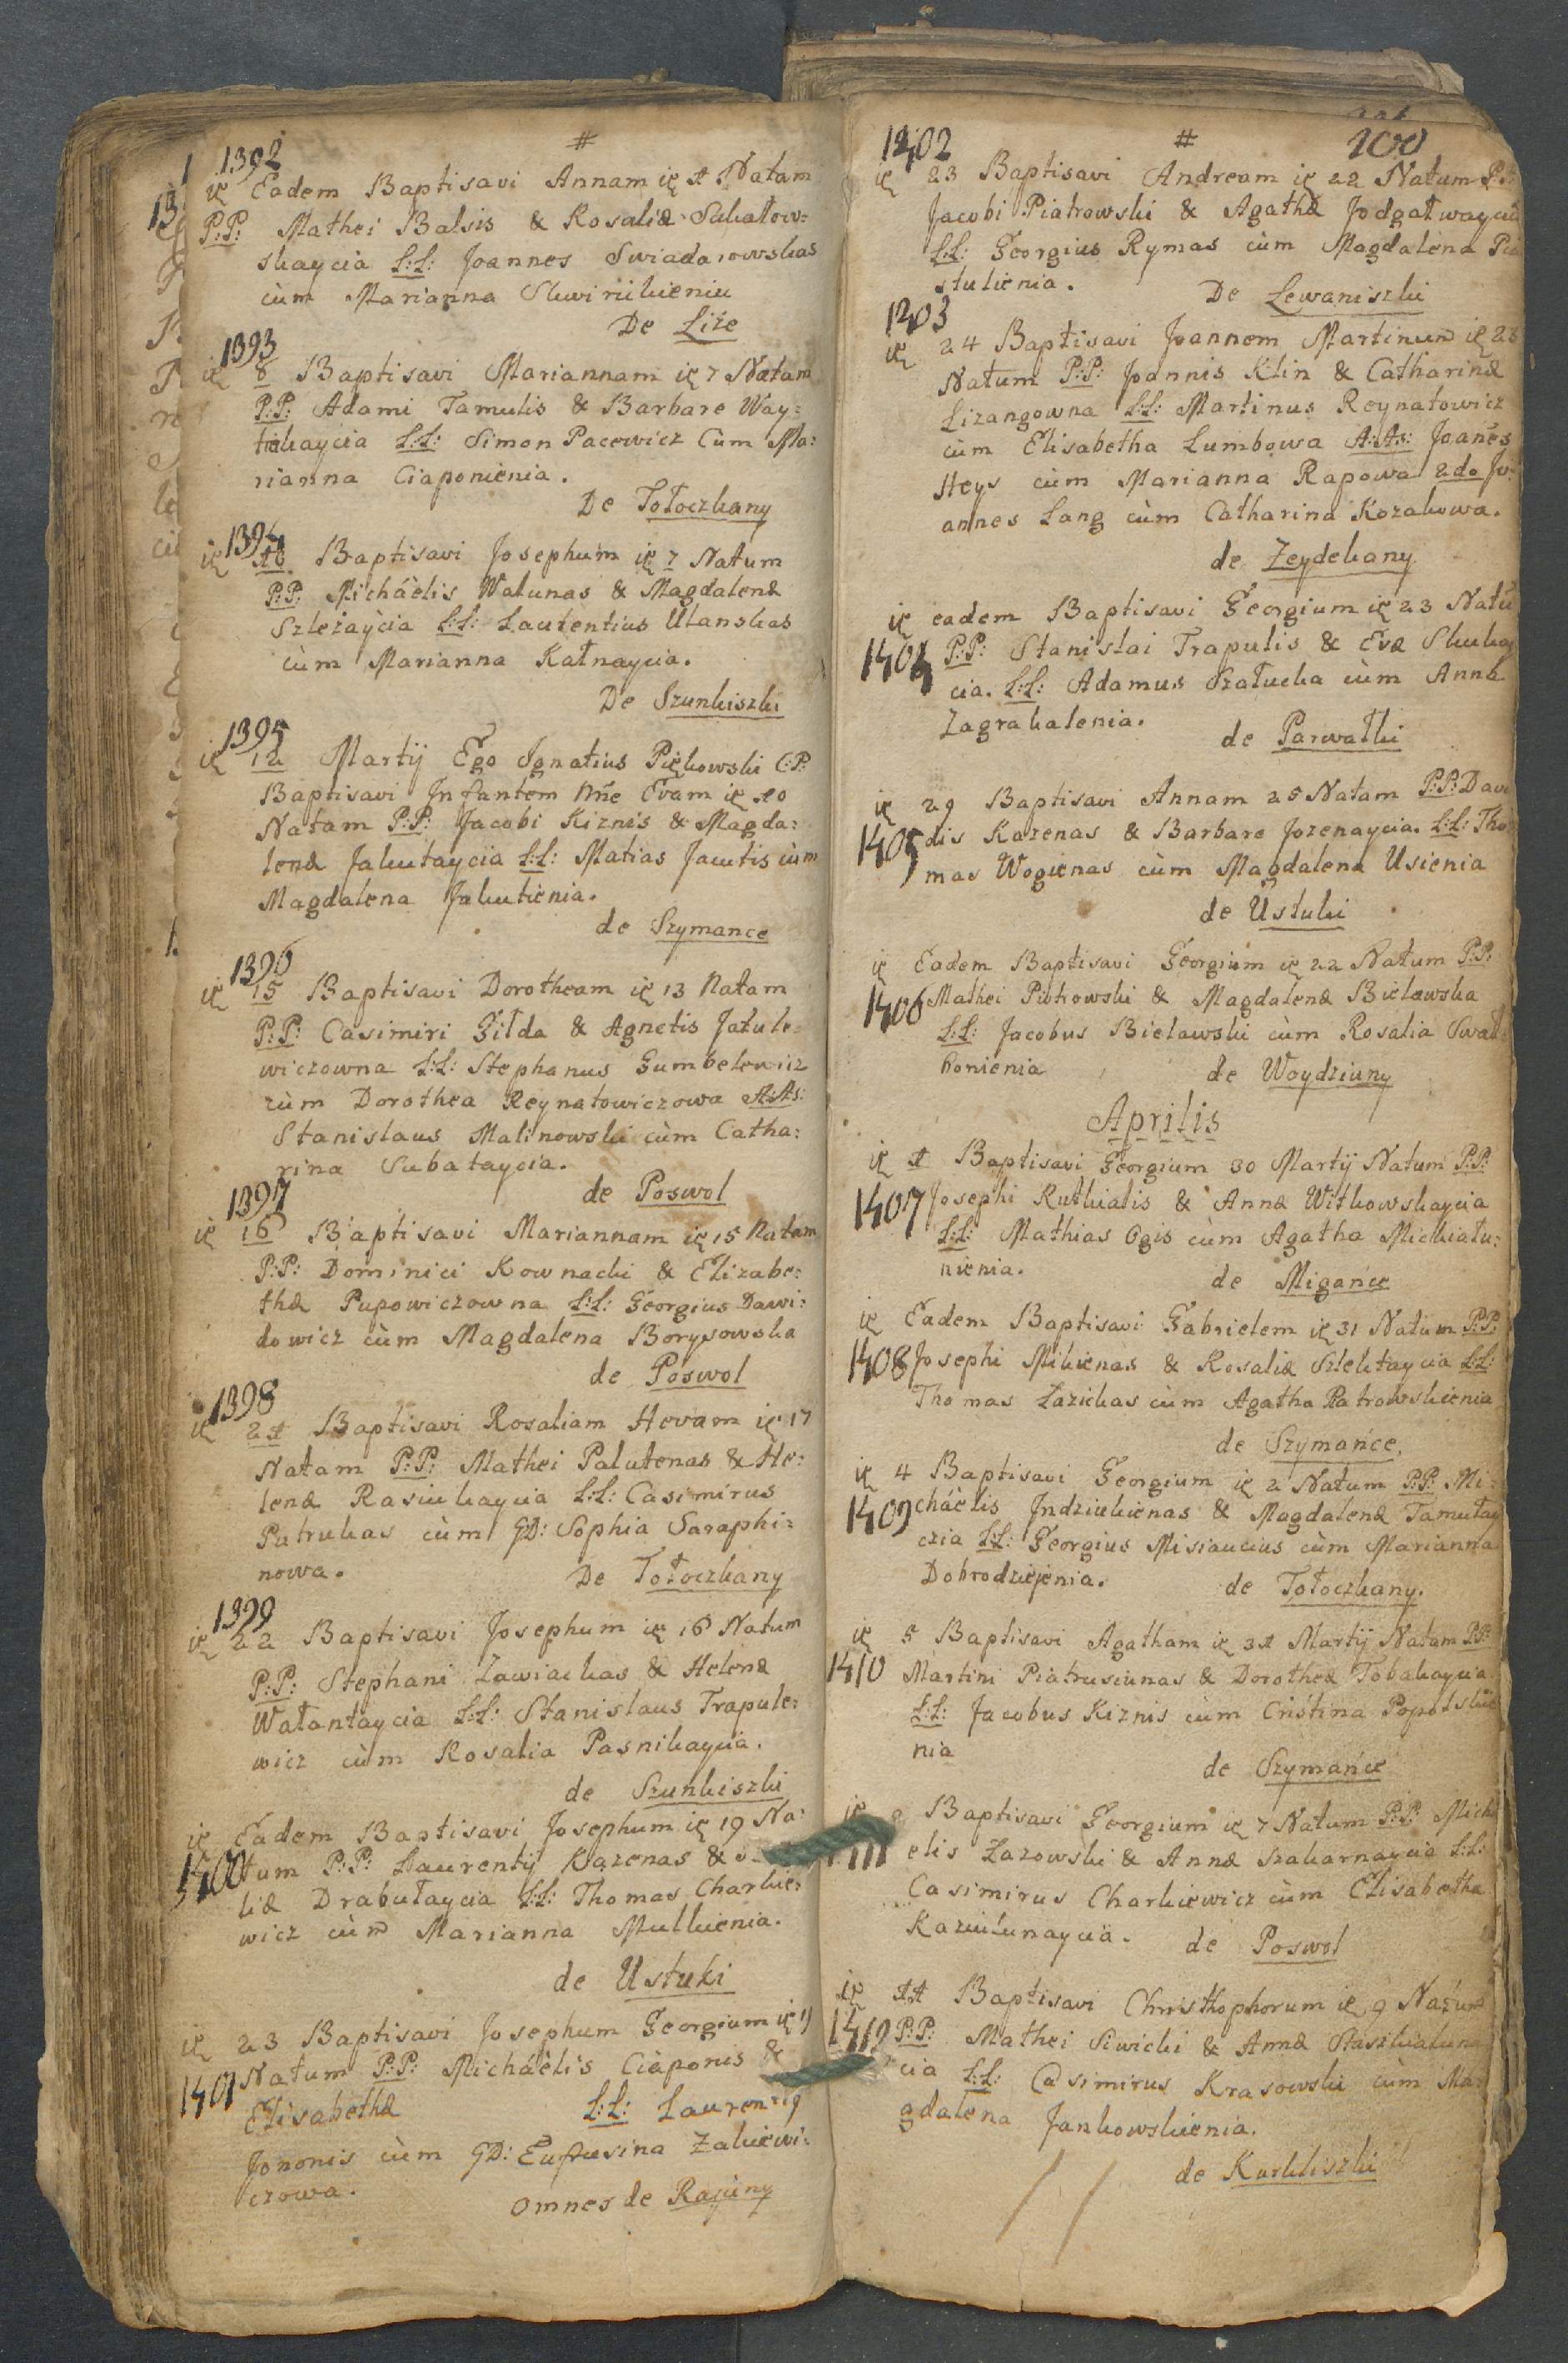 #
1392
ie Eadem Baptisavi Annam ie 1 Natam
P:P: Mathei Balsis & Rosaliæ Sakałow=
skaycia L:L: Joannes Swiadarowskas
cùm Marianna
De Liże
1393
ie 8 Baptisavi Mariannam ie 7 Natam
P:P: Adami Tamulis & Barbare Way=
tiekaycia L:L: Simon Pacewicz Cùm Ma:
rianna Ciaponienia.
De Tołoczkany
1394
ie 10 Baptisavi Josephum ie 7 Natum
P:P: Michàèlis Walunas & Magdalenæ
Szleżaycia L:L: Laurentius Ulanskas
cùm Marianna Kałnaycia.
De Szunkiszki
1395
ie 12 Martij Ego Ignatius Piękowski C:P:
Baptisavi Infantem Nñe Evam ie 10
Natam P:P: Jacobi Kiznis & Magda:
lenæ Jakutaycia L:L: Matias Jacutis cùm
Magdalena Jakutienia.
de Szymance
1396
ie 15 Baptisavi Dorotheam ie 13 Natam
P:P: Casimiri Giłda & Agnetis Jatule=
wiczowna L:L: Stephanus Gumbelewicz
cùm Dorothea Reynatowiczowa A:As:
Stanislaus Malinowski cùm Catha:
rina Subataycia.
de Poswol
1397
ie 16 Baptisavi Mariannam ie 15 Natam
P:P: Dominici Kownacki & Elizabe:
thæ Pupowiczowna L:L: Georgius Dawi:
dowicz cùm Magdalena Borysowska
de Poswol
1398
ie 21 Baptisavi Rosaliam Hevam ie 17
Natam P:P: Mathei Palutenas & He:
lenæ Rasiukaycia L:L: Casimirus
Patrukas cùm GD: Sophia Saraphi=
nowa.
De Tołoczkany
1399
ie 22 Baptisavi Josephum ie 16 Natum
P:P: Stephani Zawiackas & Helenæ
Wałantaycia L:L: Stanislaus Trapule:
wicz cùm Rosalia Pasnikaycia.
de Szunkiszki
ie Eadem Baptisavi Josephum ie 19 Na:
1400 tum P:P: Laurentij Kazenas &
liæ Drabutaycia L:L: Thomas Charkie:
wicz cùm Marianna Mulkienia.
de Ustuki
ie 23 Baptisavi Josephum Georgium ie 19
1401 Natum P:P: Michàèlis Ciàponis &
Elisabethæ L:L: Laurentij
Jononis cùm GD: Eufrusina Zakiewi:
czowa.
omnes de Rajuny
1402
#
200
ie 23 Baptisavi Andream ie 22 Natum P:P:
Jacobi Piatrowski & Agathæ Jodgałwaycia
L:L: Georgius Rymas cùm Magdalena
stulienia.
De Lewaniszki
1403
ie 24 Baptisavi Joannem Martinum ie 23
Natum P:P: Joannis Klin & Catharinæ
Lizangowna L:L: Martinus Reynatowicz
cùm Elisabetha Lumbowa A:As: Joanes
Heys cùm Marianna Rapowa 2do Jo:
annes Lang cùm Catharina Kozakowa.
de Zeydekany
ie eadem Baptisavi Georgium ie 23 Natu
1404 P:P: Stanislai Trapulis & Evæ Skukay
cia. L:L: Adamus Szałucka cùm Anna
Zagrakalenia.
de Parwałki
ie 29 Baptisavi Annam 25 Natam P:P: Davi
1405 dis Kazenas & Barbare Jozenaycia. L:L: Tho
mas Wogienas cùm Magdalena Usienia
de Ustuki
ie Eadem Baptisavi Georgium ie 22 Natum P:P:
1406 Mathei Piotrowski & Magdalenæ Bielawska
L:L: Jacobus Bielawski cùm Rosalia Swał
konienia
de Woydziuny
Aprilis
ie 1 Baptisavi Georgium 30 Martij Natum P:P:
1407 Josephi Rutkialis & Annæ Witkowskaycia
L:L: Mathias Ogis cùm Agatha Mickiału:
nienia.
de Migańce
ie Eadem Baptisavi Gabrielem ie 31 Natum P:P:
1408 Josephi Mikienas & Rosaliæ Szlektaycia L:L:
Thomas Lazickas cùm Agatha Patrowskienia
de Szymańce.
ie 4 Baptisavi Georgium ie 2 Natum P:P: Mi=
1409 chàèlis Jndziukienas & Magdalenæ Tamułay
czia L:L: Georgius Misiaucius cùm Marianna
Dobrodziejenia.
de Tołoczkany.
ie 5 Baptisavi Agatham ie 31 Martij Natam P:P:
1410 Martini Piatrusiunas & Dorotheæ Tobakaycia
L:L: Jacobus Kiznis cùm Cristina Popolskie
nia
de Szymańce
ie Baptisavi Georgium ie 7 Natum P:P: Micha
elis Lazowski & Annæ Szakarnaycia L:L:
Casimirus Charkiewicz cùm Elisabetha
Kaziulunaycia.
de Poswol
ie 11 Baptisavi Christhophorum ie 9 Natum
1412 P:P: Mathei Siwicki & Annæ Staszkałunay
cia L:L: Casimirus Krasowski cùm Ma:
gdalena Jankowskienia.
de Kurkliszki